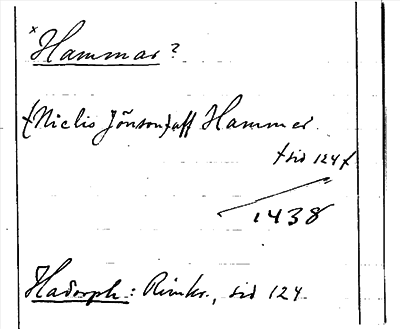 x Hammar?
{Niclis Jönson} aff Hammer
† sid 124 †
1438
Hadorph: Rimkr., sid 124.